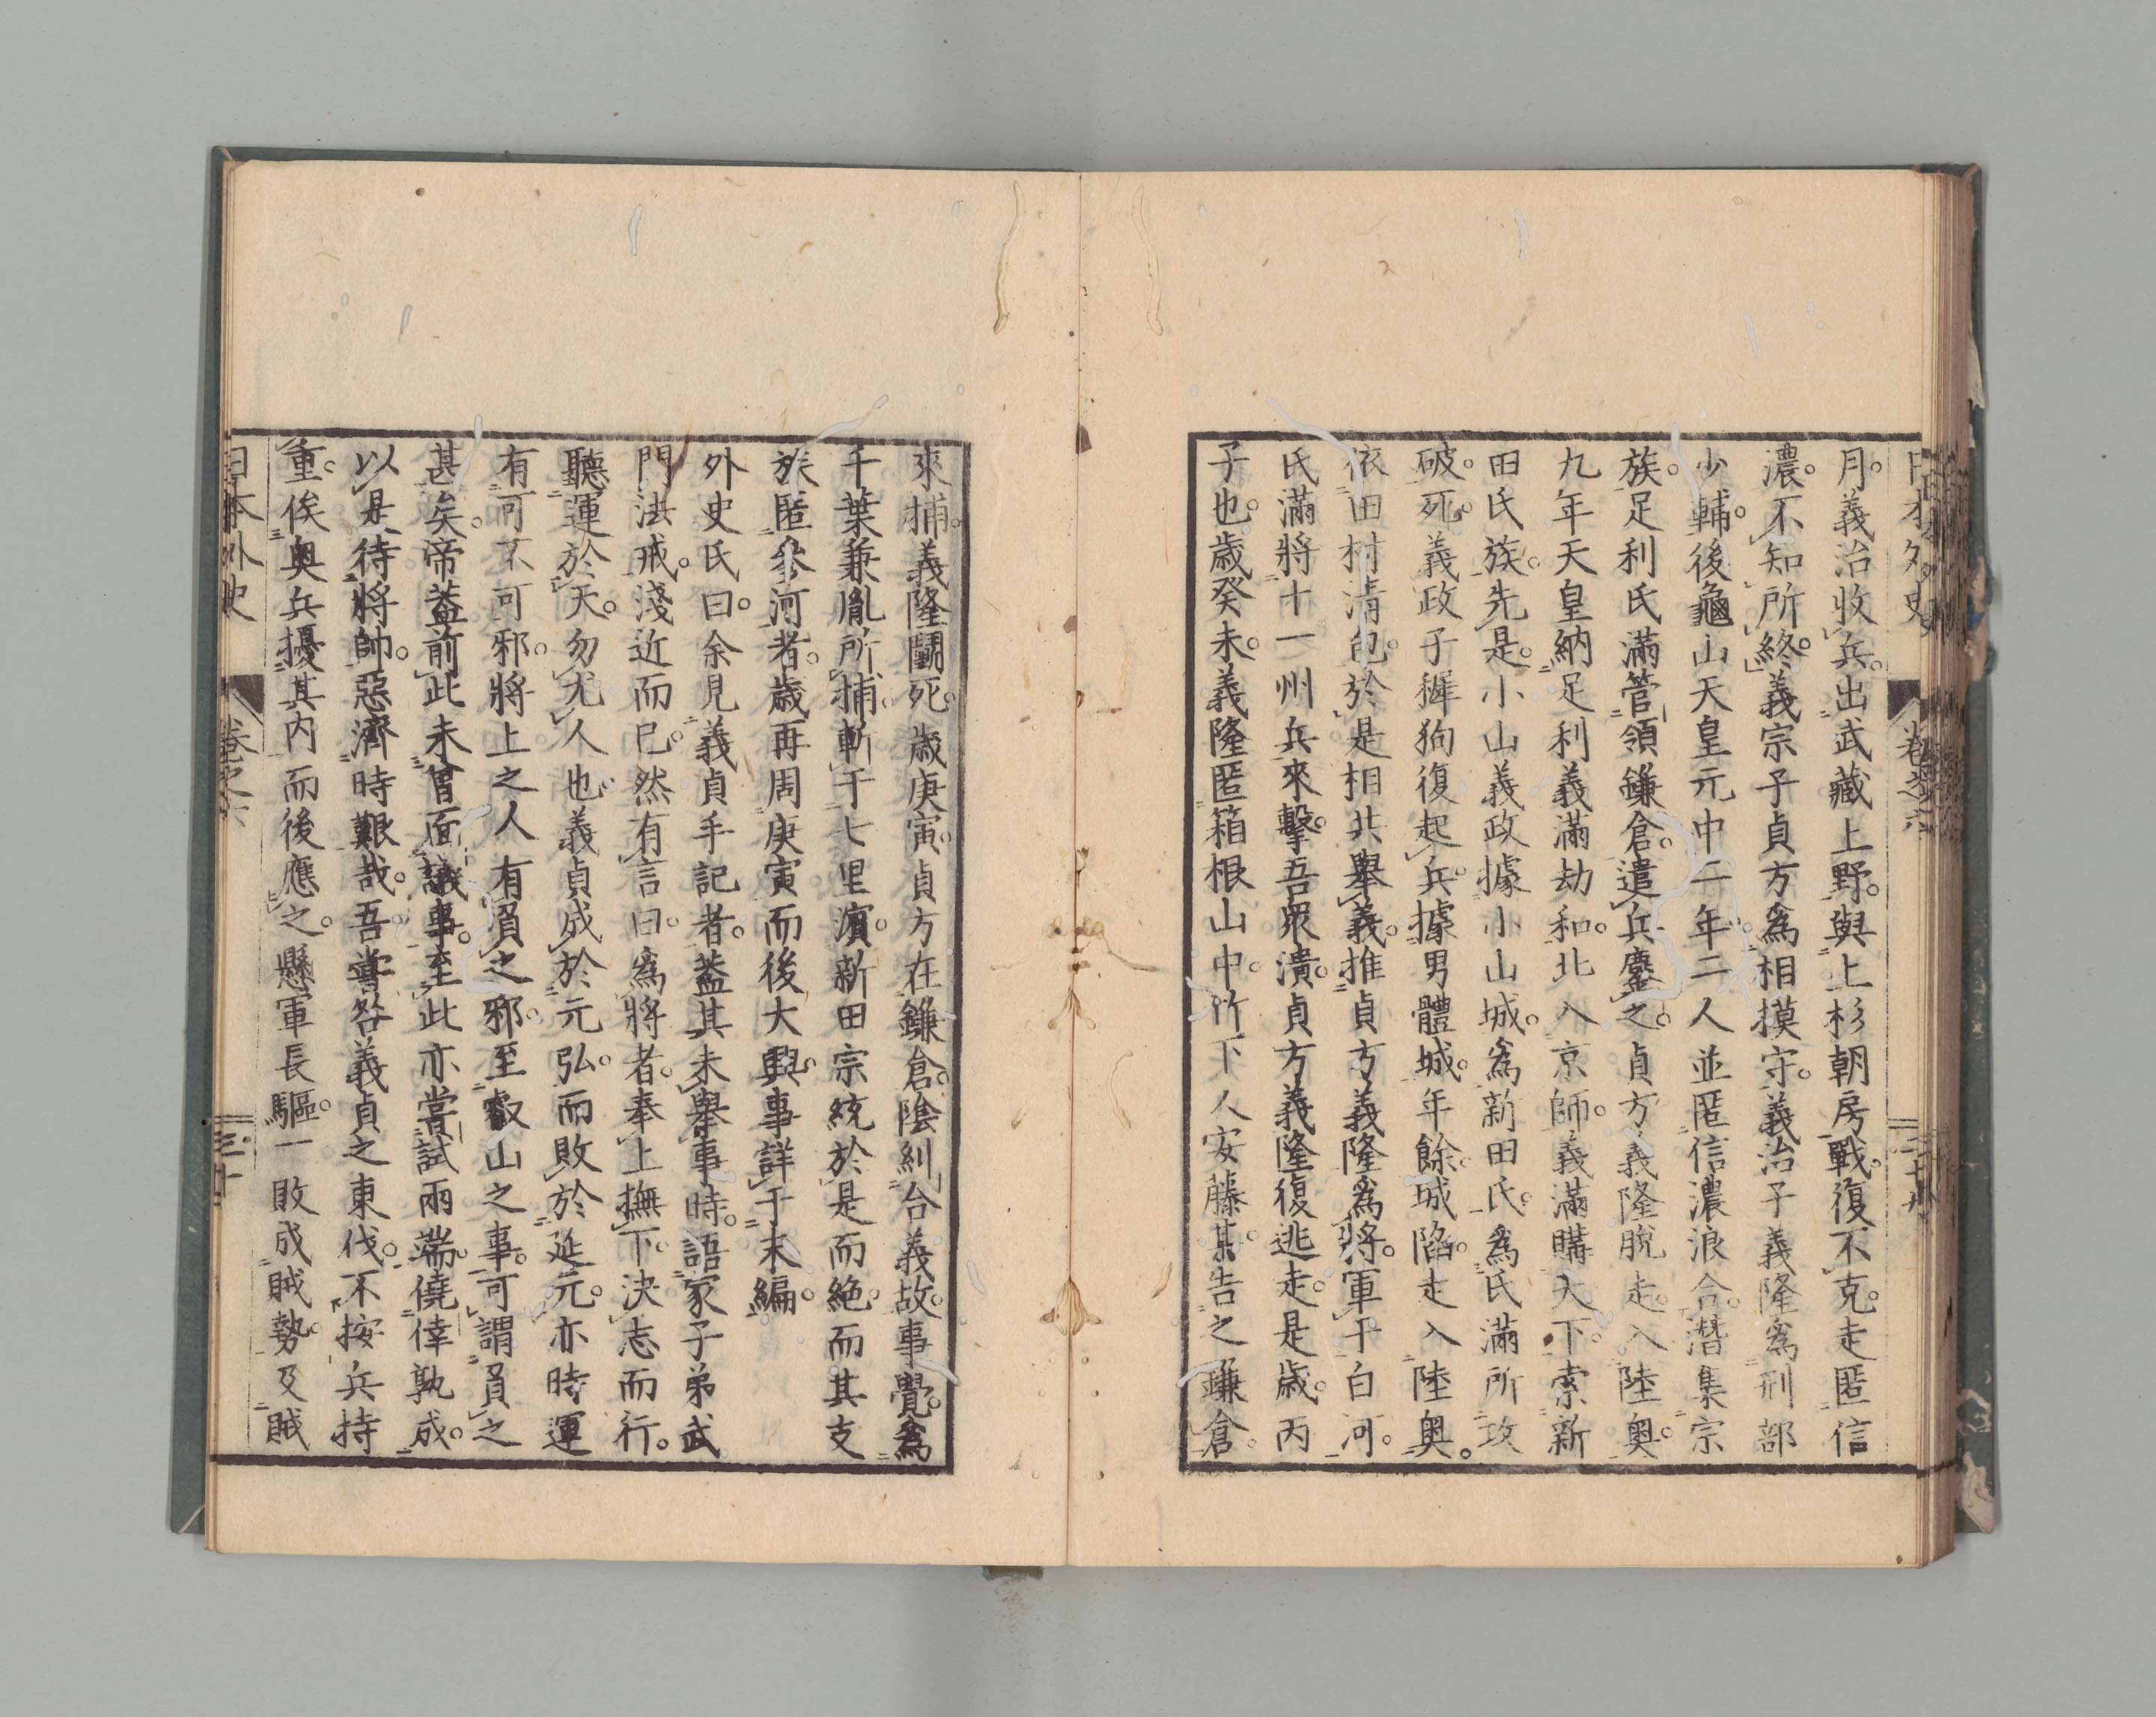 日本外史 卷之六
月。義治收兵。出武藏上野。與上杉朝房戰。復不克。走匿信
濃。不知所終。義宗子貞方爲相摸守。義治子義隆爲刑部
少輔。後龜山天皇元中二年。二人並匿信濃浪合。潛集宗
族。足利氏滿管領鎌倉。遣兵鏖之。貞方義隆脫走。入陸奧。
九年天皇納足利義滿劫和。北入京師。義滿購天下。索新
田氏族。先是。小山義政據小山城。爲新田氏。爲氏滿所攻
破死。義政子犀狗復起兵。據男體城。年餘。城陷。走入陸奧。
依田村清包。於是相共舉義。推貞方義隆爲將。軍于白河。
氏滿將十一州兵來擊。吾眾潰。貞方義隆復逃走。是歲。丙
子也。歲癸未。義隆匿箱根山中。竹下人安藤某。告之鎌倉。
來捕。義隆鬬死。歲庚寅。貞方在鎌倉。陰糾合義故。事覺。爲
千葉兼胤所捕。斬于七里濱。新田宗統於是而絕。而其支
族匿參河者。歲再周庚寅而後大興。事詳于末編。
外史氏曰。余見義貞手記者。蓋其未舉事時。語家子弟武
門法戒。淺近而已。然有言曰。爲將者。奉上撫下。決志而行。
聽運於天。勿尤人也。義貞成於元弘。而敗於延元。亦時運
有可不可邪。將上之人有負之邪。至叡山之事。可謂負之
甚矣。帝蓋前此未曾面議事。至此亦嘗試兩端。僥倖孰成。
以是待將帥。惡濟時艱哉。吾嘗咎義貞之東伐。不按兵持
重。俟奧兵擾其内而後應之。懸軍長驅。一敗成賊勢。及賊
日本外史 卷之六 三十